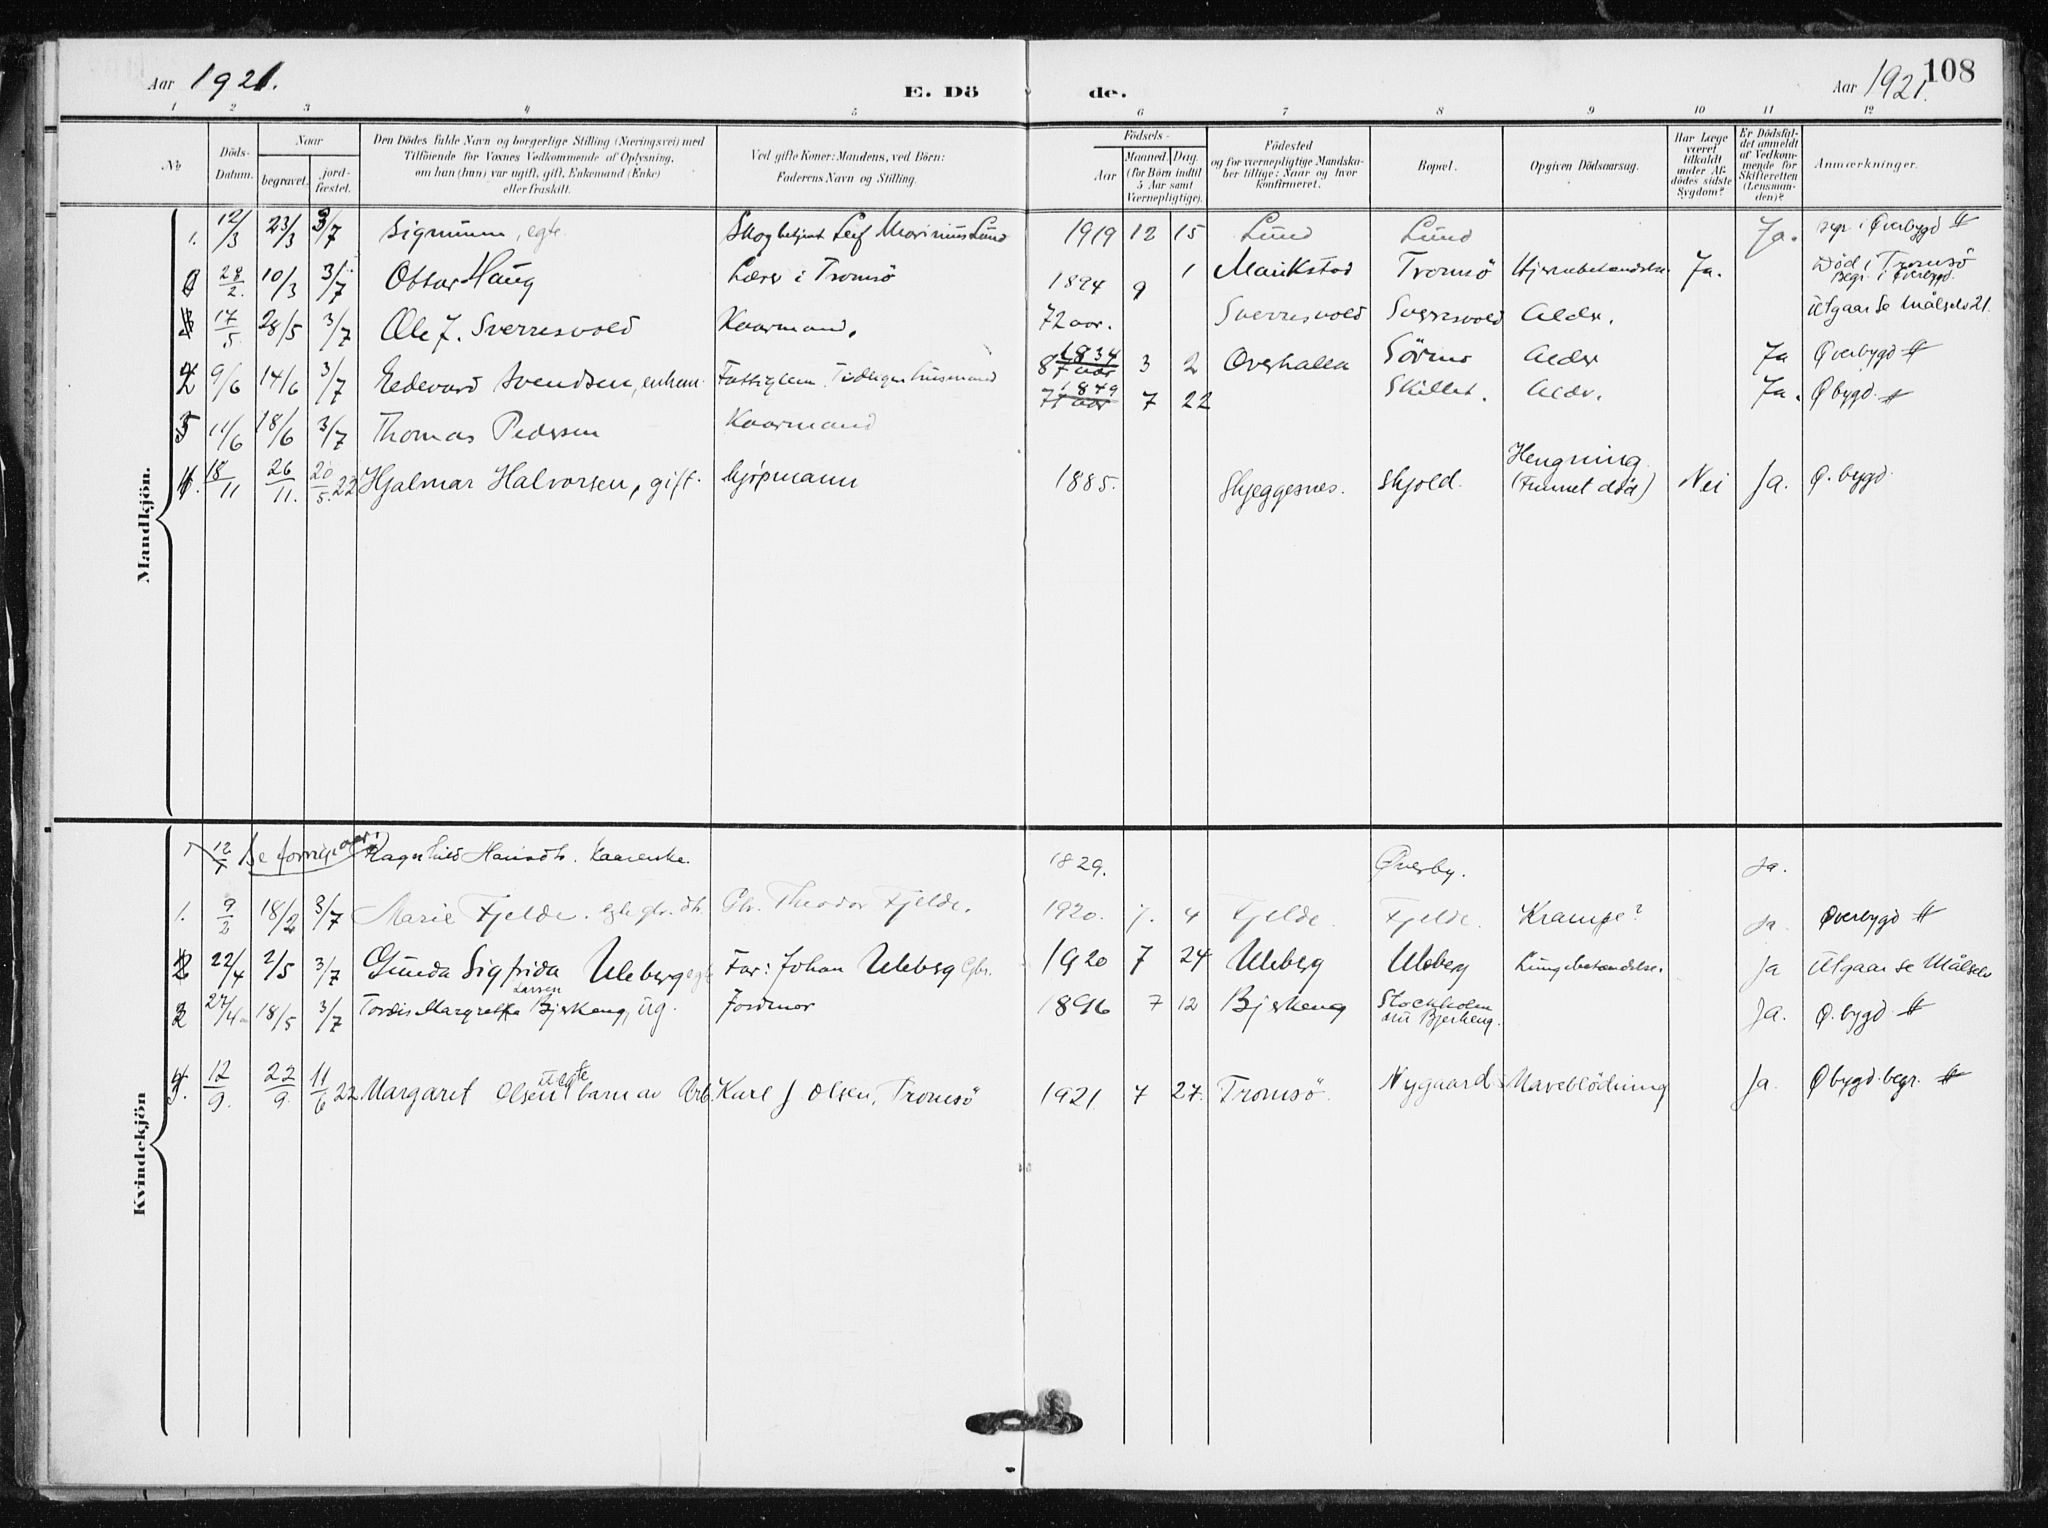 Aar 1921.
E. Dö
de.
Aar 1921.
108
1 2 3 4 5 6 7 8 9 10 11 12
No
Döds-Datum.
Naar
begravet.
jord-fæstet.
Den Dödes fulde Navn og borgerlige Stilling (Næringsvei) med
Tilföiende for Voxnes Vedkommende af Oplysning,
om han (hun) var ugift, gift, Enkemand (Enke)
eller fraskilt.
Ved gifte Koner: Mandens, ved Börn:
Faderens Navn og Stilling.
Födsels-
Aar
Maaned. Dag.
(for Börn indtil
5 Aar samt
Værnepligtige).
Födested
og for værnepligtige Mandska-
ber tillige: Naar og hvor
konfirmeret.
Bopæl.
Opgiven Dödsaarsag.
Har Læge
været
tilkaldt
under Af-
dödes sidste
Sygdom?
Er Dödsfal-
det anmeldt
af Vedkom-
mende for
Skifteretten
(Lensman-
den)?
Anmærkninger.
Mandkjön.
1. 12/3 23/3 3/7 Sigmunn, egte. Skogbetjent Leif Marinius Lund 1919 12 15 Lund Lund Ja. Begr. i Øverbygd #
28/2. 10/3 3/7 Ottar Haug Lærer i Tromsö 1894 9 1 Maukstad Tromsö Hjernebetændelse Ja. Död i Tromsö Begr. i Øverbygd.
17/5. 28/5 3/7 Ole J. Sverresvold Kaarmand. 72 aar. Sverresvold Sverresvold Alder. Utgaar Se Målselv 21.
2 9/6 14/6 3/7 Eedevard Svendsen, enkem. Fattiglem. Tidligere husmand 1834 87 aar 3 2 Overhalla Sörmo Alder Ja Øverbygd #
3 11/6 18/6 3/7 Thomas Pedersen Kaarmand 1849 71 aar 7 22 Skillet. Alder. Ja. Øbygd. #
4. 18/11 26/11. 20/5. 22 Hjalmar Halvorsen, gift. kjøpmann 1885. Skjeggesnes. Skjold. Hengning (Funnet död) Nei Ja. Ø. bygd.
Kvindekjön
12/1 Se forrige aar! Ragnhild Hansdtr. Kaarenke. 1829. Øverby. Ja.
1. 9/2 18/2 3/7 Marie Fjelde. egte gbr. dtr. Gbr. Theodor Fjelde. 1920. 7. 4 Fjelde. Fjelde. Krampe? Ja. Øverbygd #
2 22/4 2/5 3/7 Gunda Sigfrida Uleberg egte Far: Johan Uleberg Gbr. 1920 7 24 Uleberg Uleberg Lungebetændelse. Ja Utgaar se Målselv
2 27/4 18/5 3/7 Tordis Margrethe Larsen Bjerkeng, ug. Jordmor 1896 7 12 Bjerkeng Stockholm nu Bjerkeng. Ja. Ø. bygd #
12/9. 22/9 11/6 22 Margaret Olsen uegte barn av Arb. Karl J Olsen, Tromsö 1921. 7 27. Tromsö. Nygaard Maveblödning Ja. Øbygd. begr. #